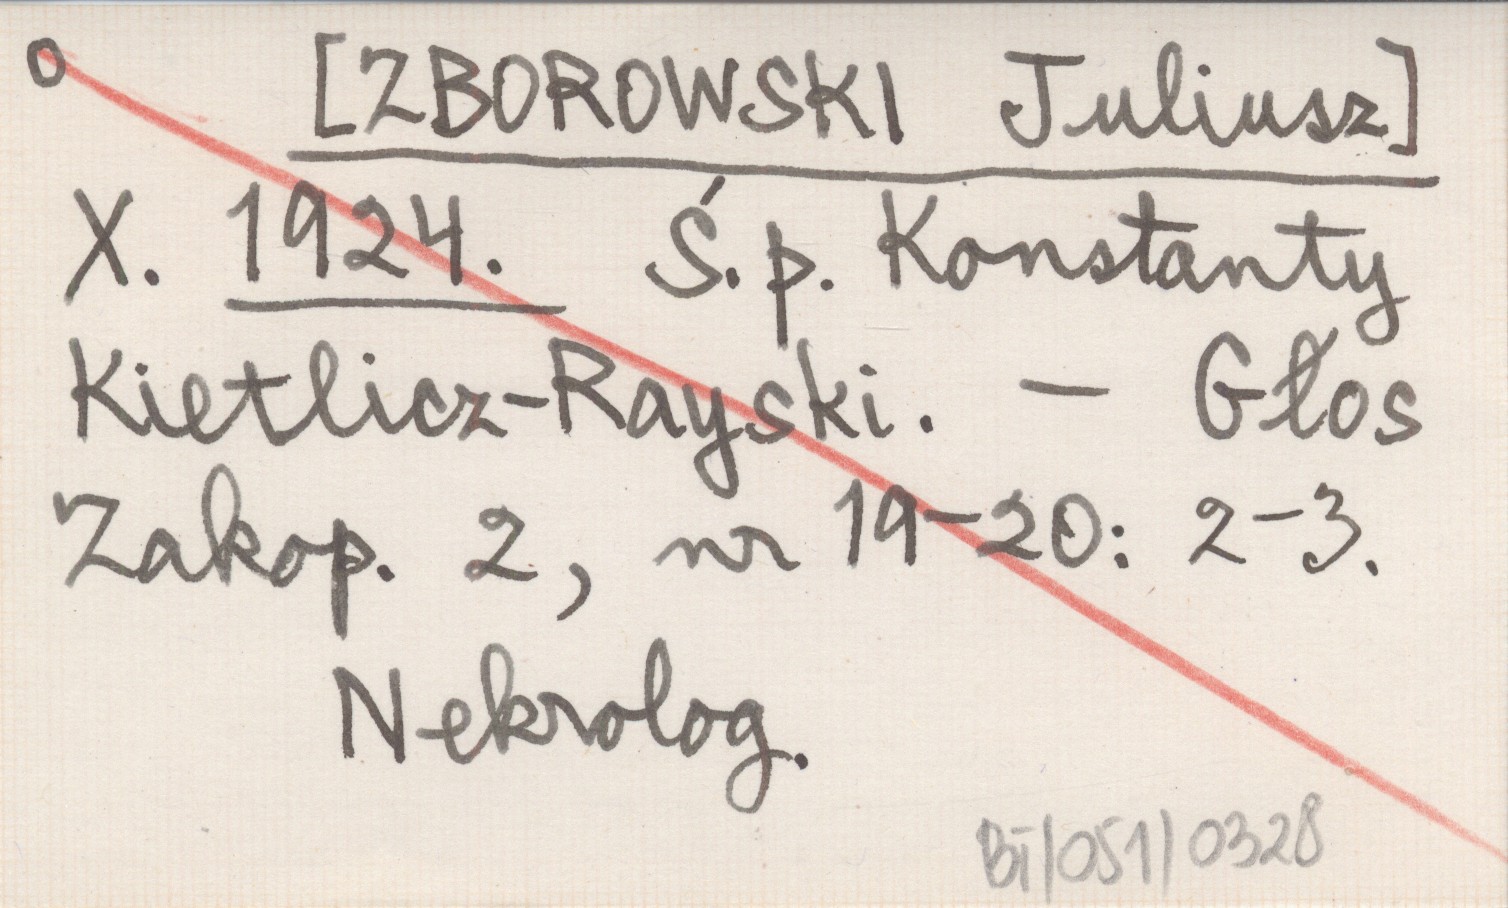 o [ZBOROWSKI Juliusz]
X. 1924. Ś.p. Konstanty
Kietlicz-Rayski. — Głos
Zakop. 2, nr 19-20: 2-3.
Nekrolog.
BT/051/0328